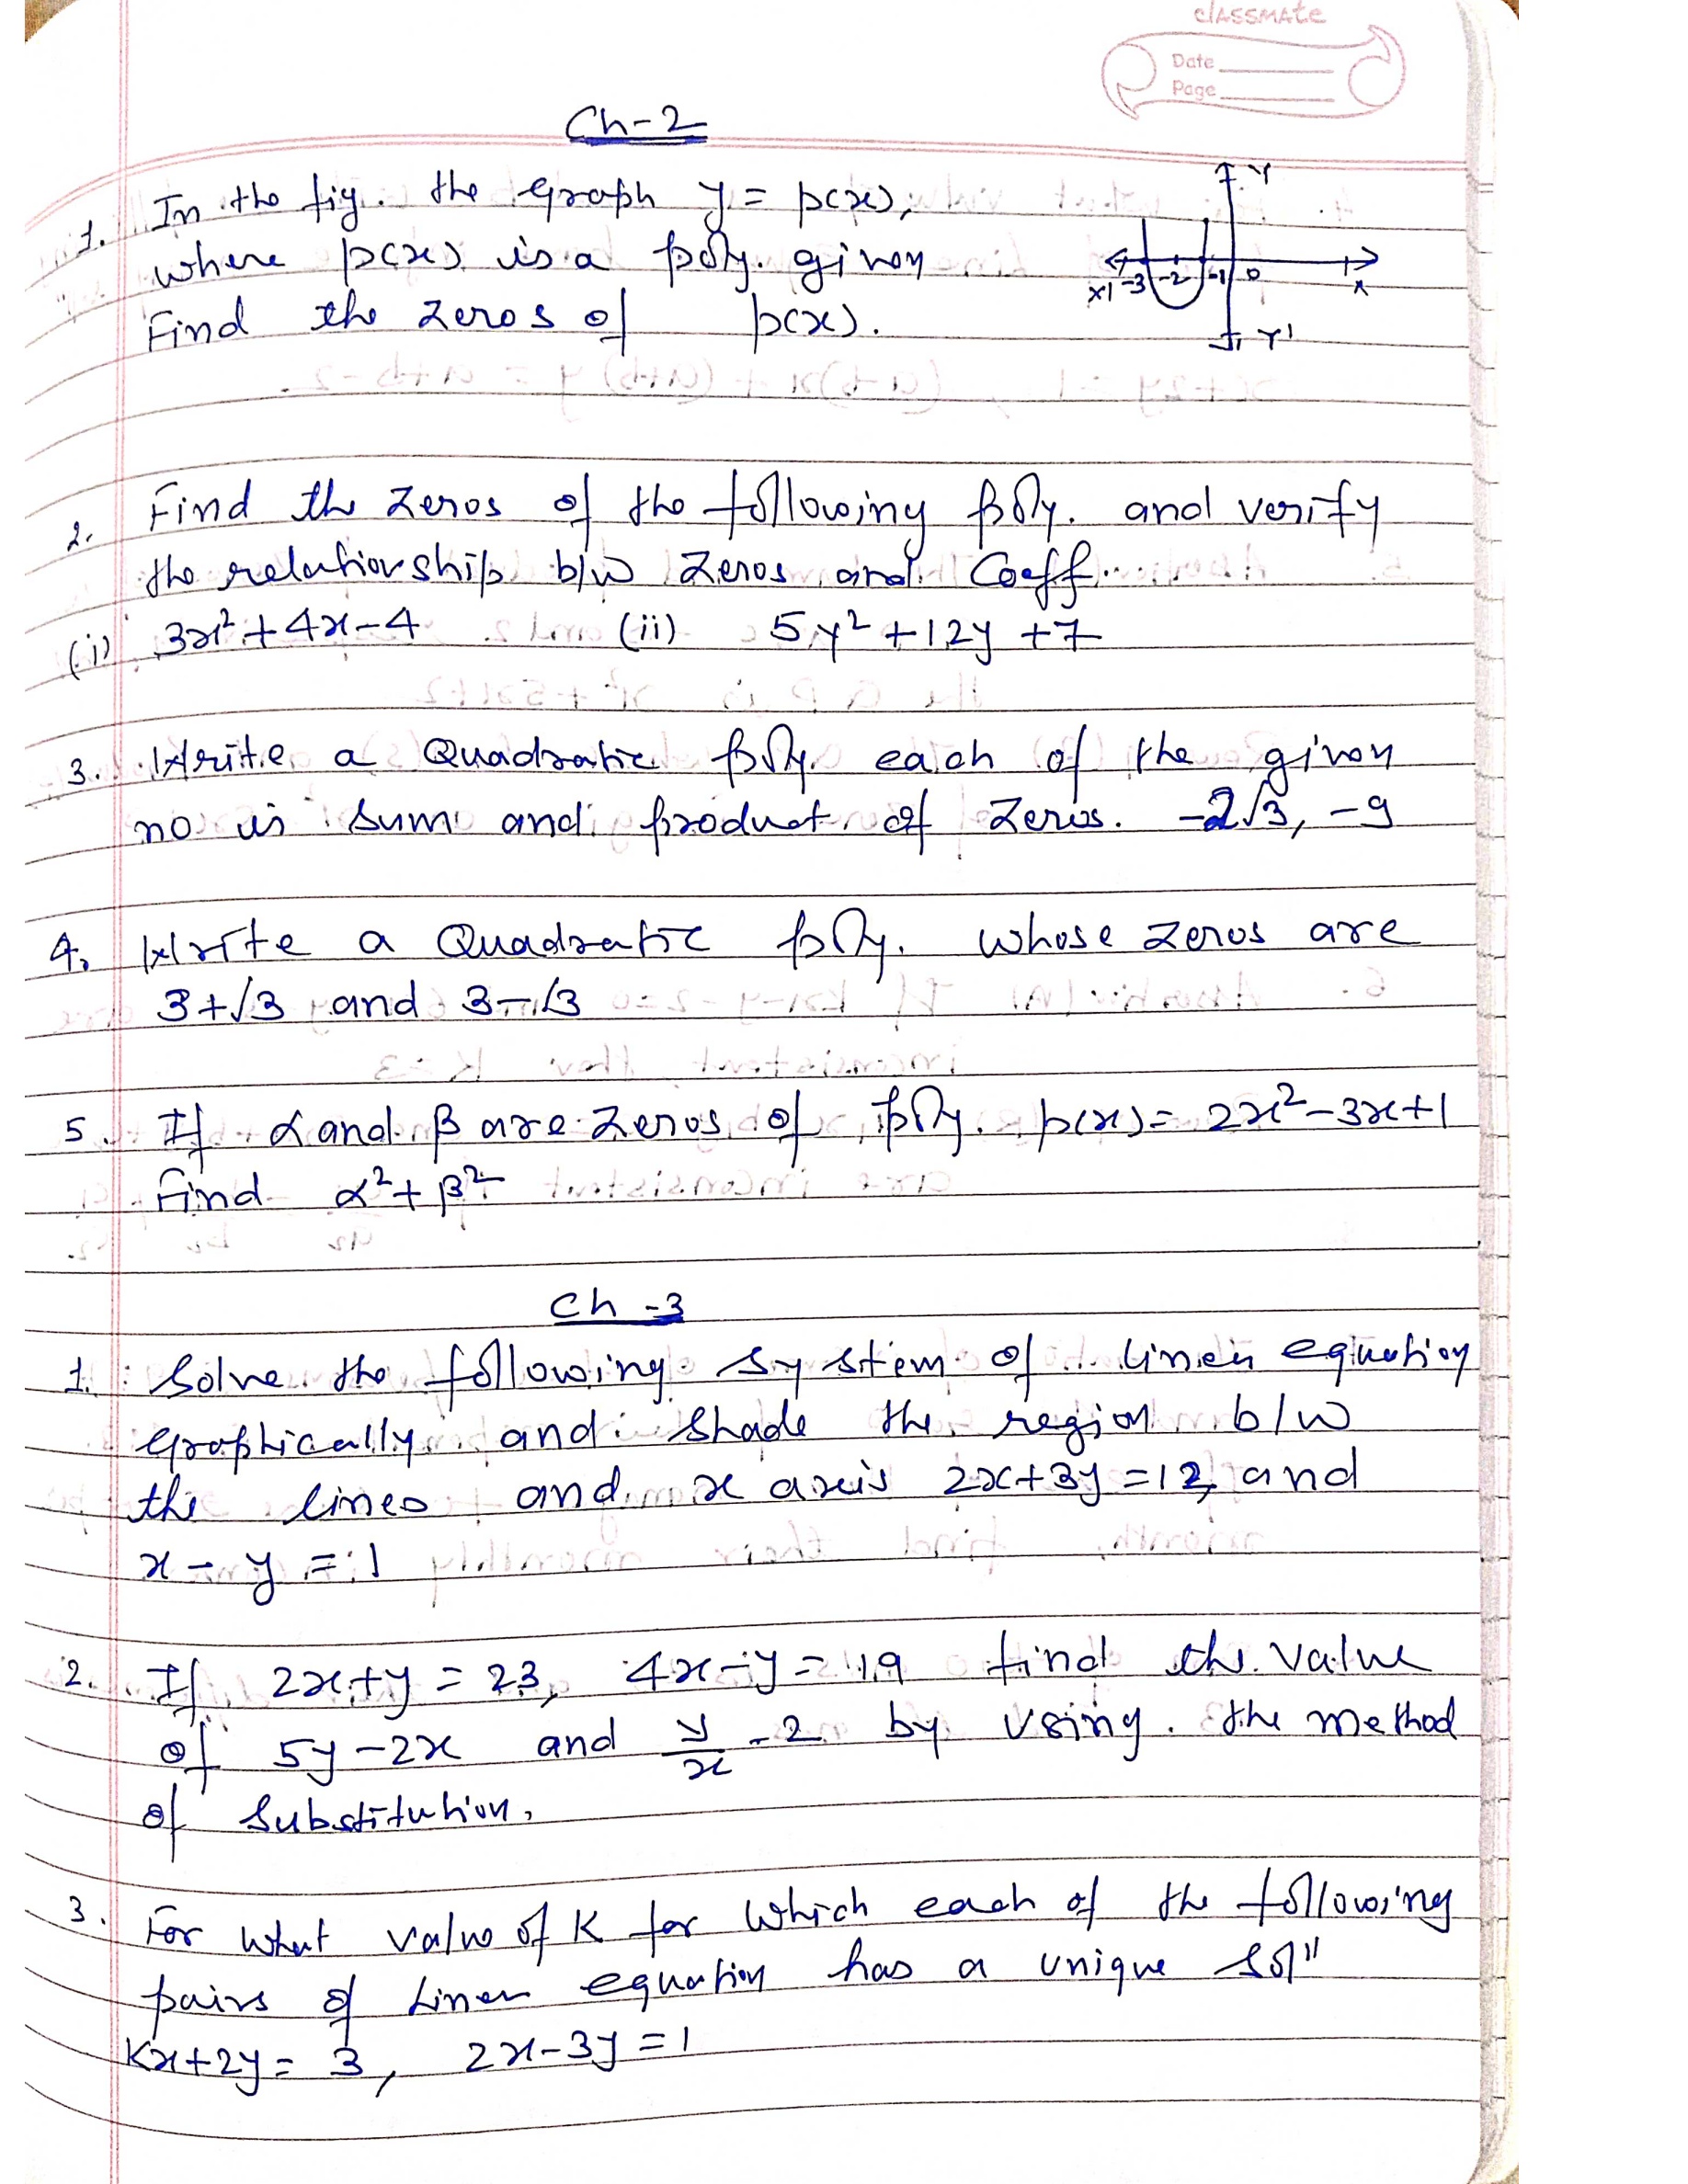 classmate
Date
Page
Ch-2
1. In the fig. the graph y = p(x),
where p(x) is a poly. given
Find the zeros of p(x).
Y
X' -3 -2 -1 0 X
Y'
2. Find the zeros of the following poly. and verify
the relationship b/w zeros and Coeff.
(i) 3x²+4x-4 (ii) 5y²+12y+7
3. Write a Quadratic poly. each of the given
no is sum and product of zeros. -2√3, -9
4. Write a Quadratic poly. whose zeros are
3+√3 and 3-√3
5. If α and β are zeros of poly. p(x)= 2x²-3x+1
Find α²+β²
Ch-3
1. Solve the following system of linear equation
graphically and shade the region b/w
the lines and x axis 2x+3y=12, and
x-y=1
2. If 2x+y=23, 4x-y=19 find the value
of 5y-2x and y/x-2 by using the method
of Substitution.
3. For what value of K for which each of the following
pairs of Linear equation has a unique solⁿ
Kx+2y=3, 2x-3y=1